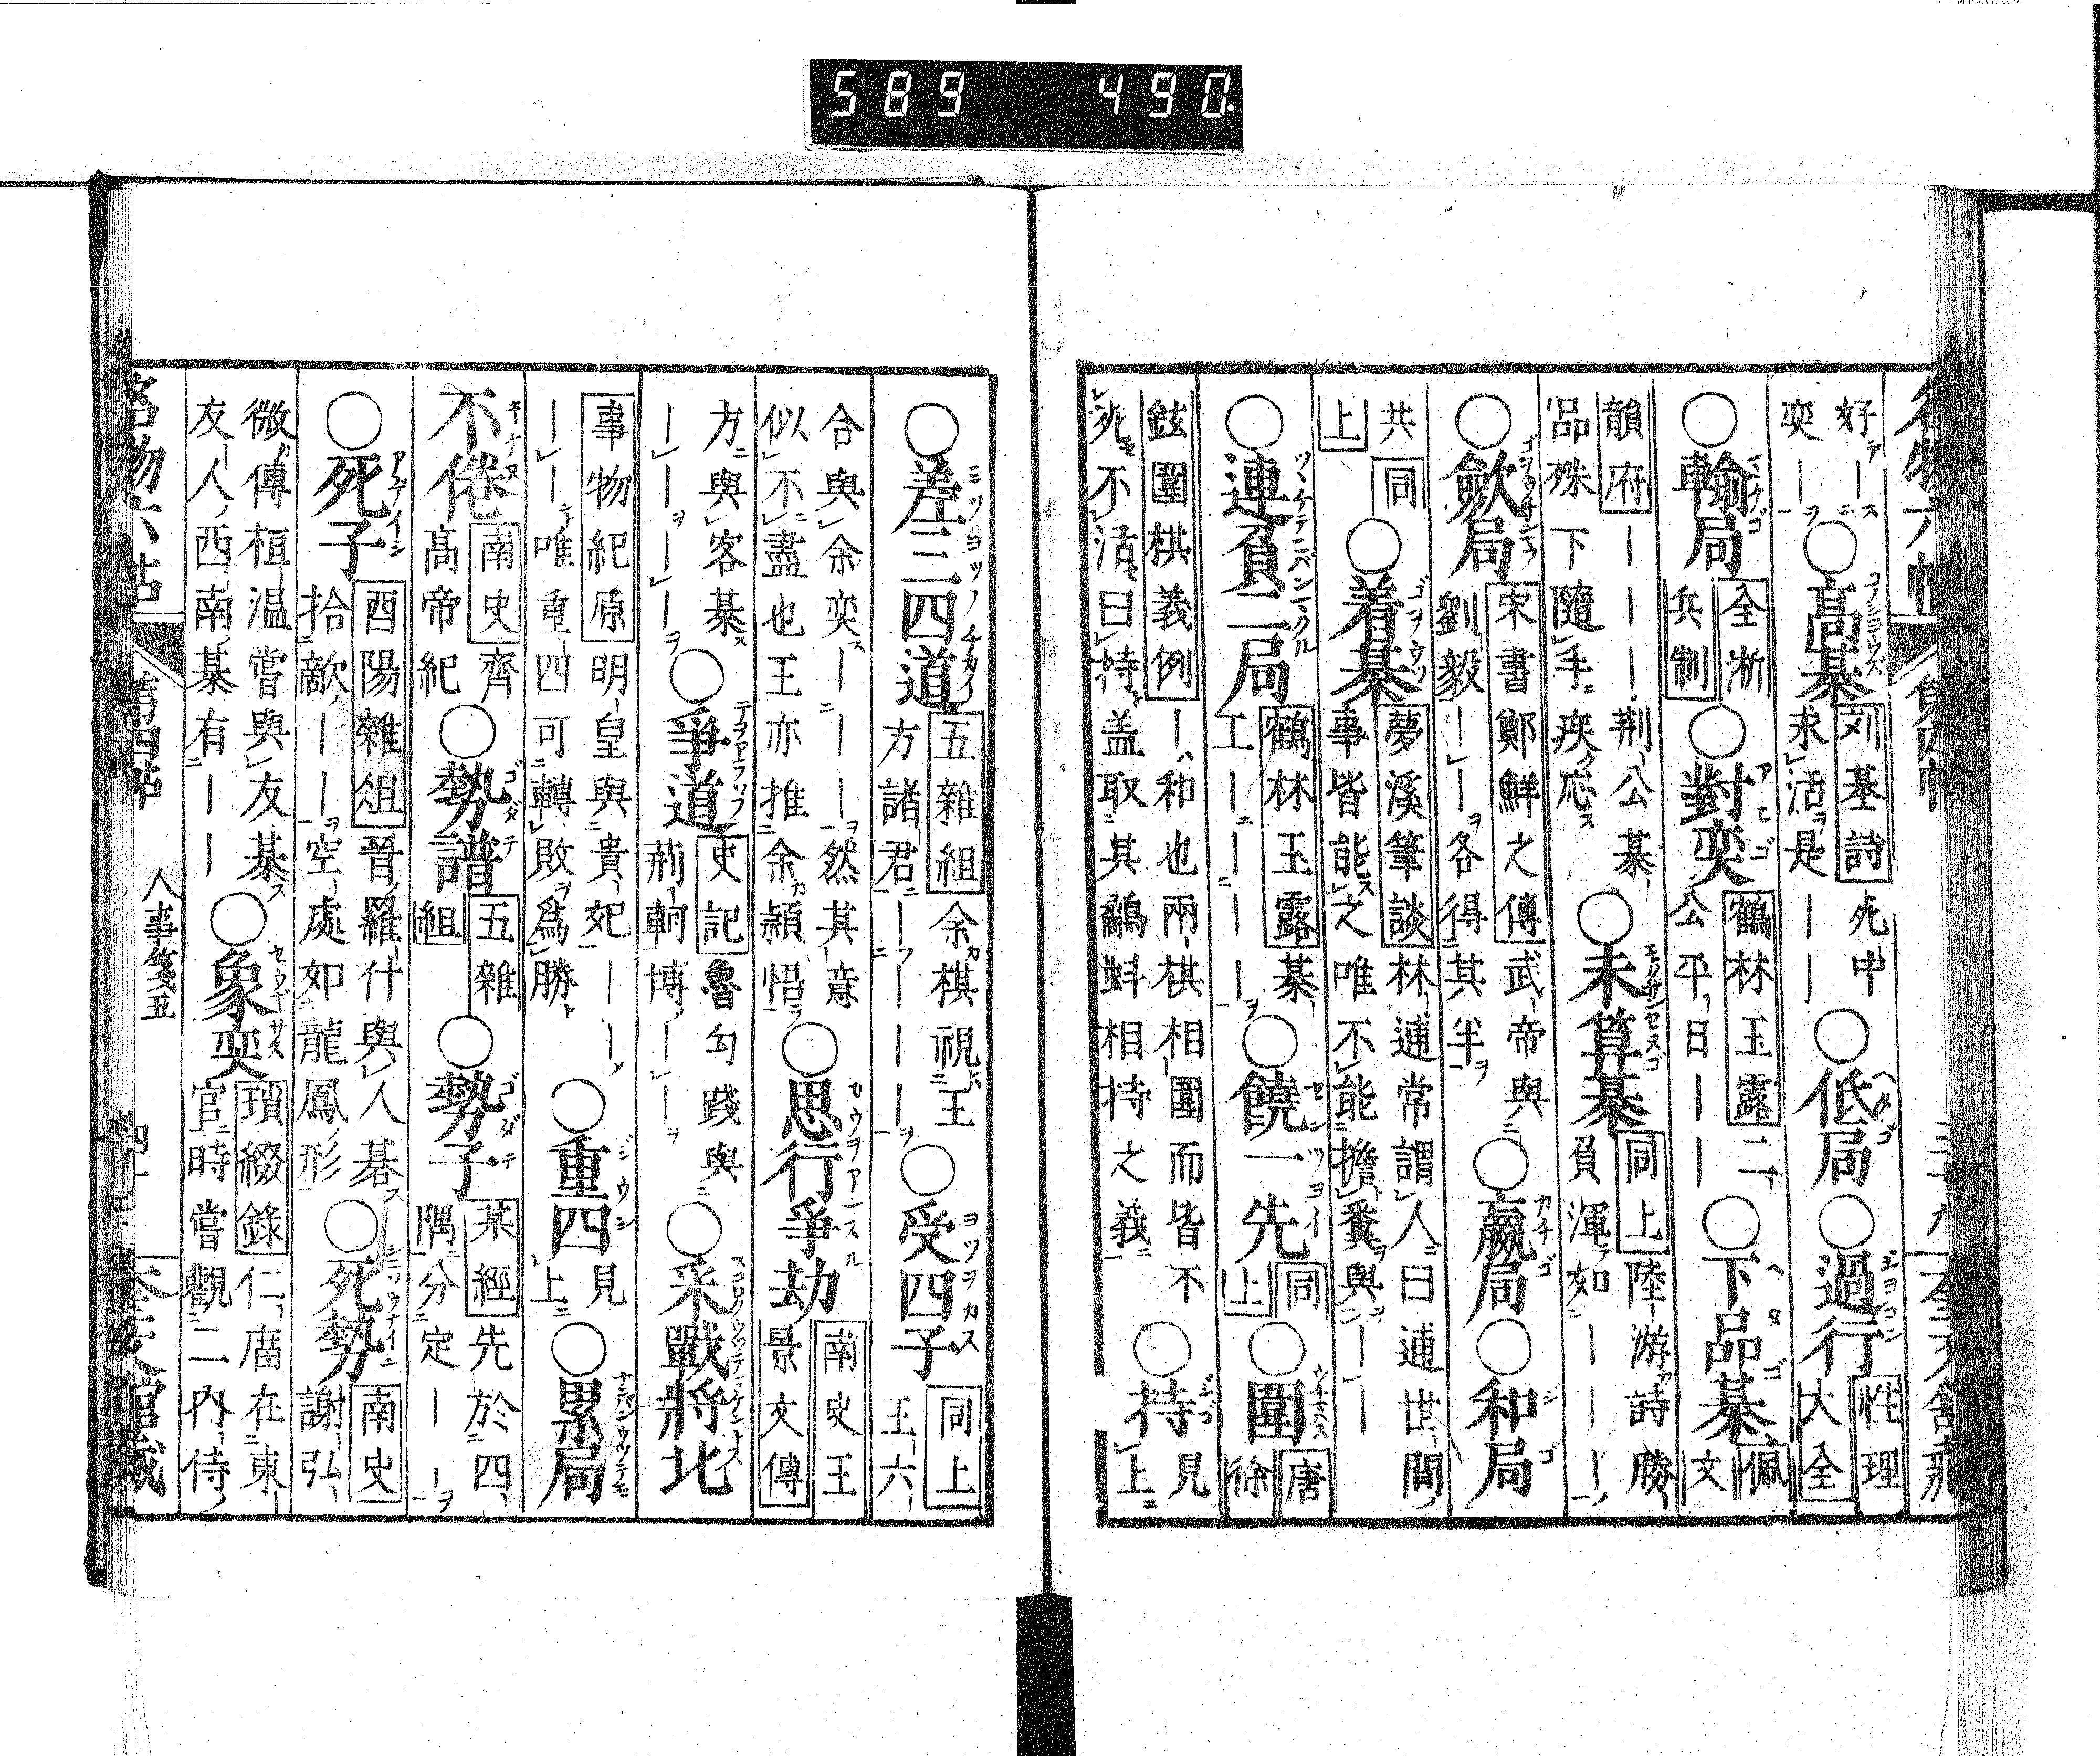 589 490
名物六帖 第四帖
好ーー
奕ーー○高棊 刘基詩 死中
求活是ーー○低局○過行 性理
大全
○輸局 全淅
兵制○對奕 鶴林玉露 二
公平日ーー○下品棊 佩文
韻府ーーーー荆公棊
品殊下隨手疾应○未算棊 同上 陸游詩勝
負渾如ーーー
○歛局 宋書鄭鮮之傳 武帝與
劉毅ーー各得其半○贏局○和局
共同
上○着棊 夢溪筆談 林逋常謂人曰逋世間
事皆能之唯不能擔糞與ーー
○連負二局 鶴林玉露 棊
工ーーーー○饒一先 同
上○圍 唐徐
鉉圍棋義例 ー和也兩棋相圍而皆不
死不活曰持盖取其鷸蚌相持之義○持 見上
○差三四道 五雜組 余棋視王
方諸君ーーーー○受四子 同上 王六
合與余奕ーーー然其意
似不盡也王亦推余穎悟○思行爭劫 南史王
景文傳
方與客棊
ーーーー○爭道 史記 魯勾踐與
荊軻博ーー○采戰將北
事物紀原 明皇與貴妃ーー
ーー唯重四可轉敗爲勝○重四 見上○累局
不倦 南史 齊
高帝紀○勢譜 五雜
組○勢子 棊經 先於四
隅分定ーー
○死子 酉陽雜俎 晉羅什與人碁
拾敵ーー空處如龍鳳形○死勢 南史
謝弘
微傳桓温嘗與友棊
友人西南棊有ーー○象奕 瑣綴錄 仁庿在東
官時嘗觀二內侍
名物六帖 第四帖 人事箋五